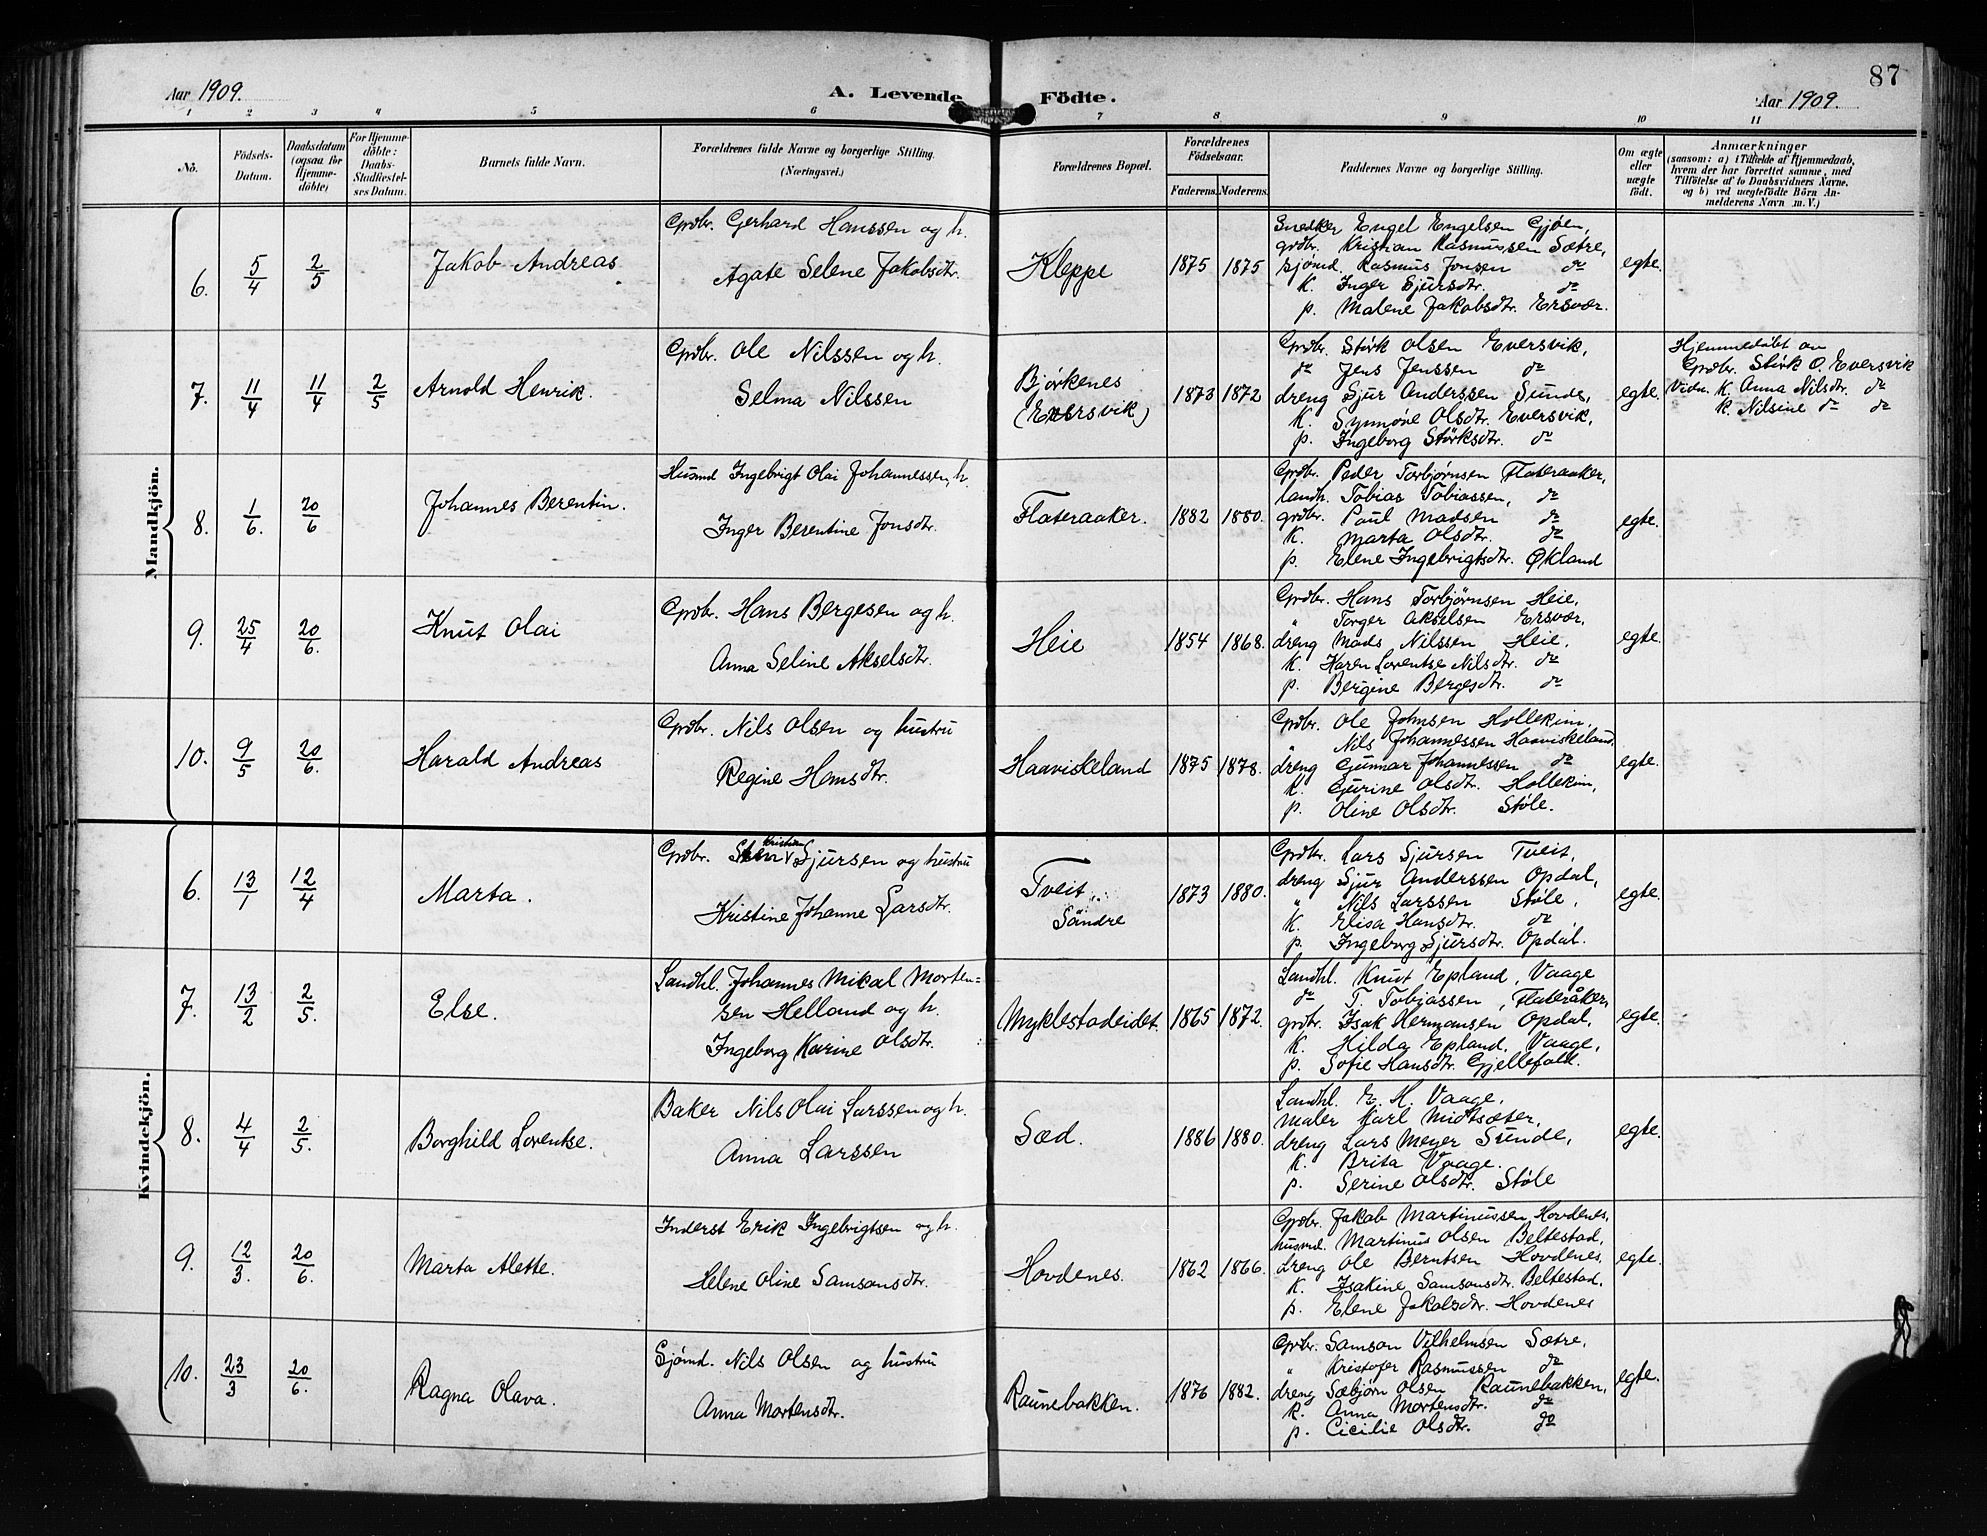 87
Aar 1909.
A. Levende Födte.
Aar 1909.
1 2 3 4 5 6 7 8 9 10 11
No.
Födsels-Datum.
Daabsdatum (ogsaa for Hjemmedöbte)
For Hjemmedöbte: Daabs-Stadfæstelses Datum.
Barnets fulde Navn.
Forældrenes fulde Navne og borgerlige Stilling. (Næringsvei.)
Forældrenes Bopæl.
Forældrenes Födselsaar.
Faderens. Moderens.
Faddernes Navne og borgerlige Stilling.
Om ægte eller uægte födt.
Anmærkninger
(saasom: a) i Tilfælde af Hjemmedaab,
hvem der har forrettet samme, med
Tilföielse af to Daabsvidners Navne.
og b) ved uægtefödte Börn An-
melderens Navn m. V.)
Mandkjön.
6. 5/4 2/5 Jakob Andreas
Grdbr. Gerhard Hanssen og h.
Agate Selene Jakobsdtr.
Kleppe 1875 1875
Snedker Engel Engelsen Gjøen,
grdbr. Kristian Rasmussen Sætre,
sjømd. Rasmus Jonsen do
K. Inger Sjursdtr. do
p. Malene Jakobsdtr. Ersvær.
egte.
7. 11/4 11/4 2/5 Arnold Henrik.
Grdbr. Ole Nilssen og h.
Selma Nilssen
Bjørkenes
(Eversvik)
1873 1872
Grdbr. Størk Olsen Eversvik,
do Jens Jenssen do
dreng Sjur Anderssen Sunde,
K. Synnøve Olsdtr. Eversvik,
p. Ingeborg Størksdtr. do
egte.
Hjemmedøbt av
Grdbr. Størk O. Eversvik
Vidn. K. Anna Nilsdtr. do
K. Nilsine do do
8. 1/6. 20/6 Johannes Berentin.
Husmd Ingebrigt Olai Johannessen, h.
Inger Berentine Jonsdtr.
Flateraaker. 1882 1880.
Grdbr. Peder Torbjørnsen Flateraaker,
landh. Tobias Tobiassen, do
grdbr. Paul Madsen do
K. Marta Olsdtr. do
p. Elene Ingebrigtsdtr. Økland
egte.
9. 25/4 20/6. Knut Olai
Grdbr. Hans Bergesen og h.
Anna Seline Akselsdtr.
Heie 1854 1868.
Grdbr. Hans Torbjørnsen Heie,
" Torger Akselsen Ersvær,
dreng Mads Nilssen Heie,
K. Karen Lorentse Nilsdtr. do
p. Bergine Bergesdtr. do
egte.
10. 9/5 20/6. Harald Andreas
Grdbr. Nils Olsen og hustru
Regine Hansdtr.
Haaviskeland 1875 1878.
Grdbr. Ole Johnsen Hollekim,
" Nils Johannessen Haaviskeland,
dreng Gunnar Johannessen do
K. Gurine Olsdtr. Hollekim,
p. Oline Olsdtr. Støle.
egte.
Kvindekjön.
6. 13/1 12/4 Marta.
Grdbr. Kristian Sjursen og hustru
Kristine Johanne Larsdtr.
Tveit
Søndre
1873 1880.
Grdbr. Lars Sjursen Tveit,
dreng Sjur Anderssen Opdal,
" Nils Larssen Støle,
K. Elisa Hansdtr. do
p. Ingeborg Sjursdtr. Opdal.
egte.
7. 13/2 2/5. Else.
Landhl. Johannes Mikal Morten-
sen Helland og h.
Ingeborg Karine Olsdtr.
Myklestadeidet. 1865 1872.
Landhl. Knut Epland, Vaage
do T. Tobiassen, Flateråker,
grdbr. Isak Hermansen Opdal,
K. Hilda Epland, Vaage,
p. Sofie Hansdtr. Gjellefald.
egte.
8. 4/4 2/5. Borghild Lorentse.
Baker Nils Olai Larssen og h.
Anna Larssen
Sæd. 1886 1880.
Landhl. E. H. Vaage,
maler Karl Midtsæter,
dreng Lars Meyer Sunde,
K. Brita Vaage.
p. Serine Olsdtr. Støle
egte.
9. 12/3. 20/6. Marta Alette.
Inderst Erik Ingebrigtsen og h.
Helene Oline Samsonsdtr.
Hovdenes. 1862 1866.
Grdbr. Jakob Martinussen Hovdenes,
husmd. Martinus Olsen Beltestad,
dreng Ole Berntsen Hovdenes,
K. Isakine Samsonsdtr. Beltestad,
p. Elene Jakobsdtr. Hovdenes
egte.
10. 23/3 20/6. Ragna Olava.
Sjømd. Nils Olsen og hustru
Anna Mortensdtr.
Raunebakken. 1876 1882.
Grdbr. Samson Vilhelmsen Sætre,
" Kristofer Rasmussen do
dreng Sæbjørn Olsen Raunebakken,
K. Anna Mortensdtr. do
p. Cicilie Olsdtr. do
egte.